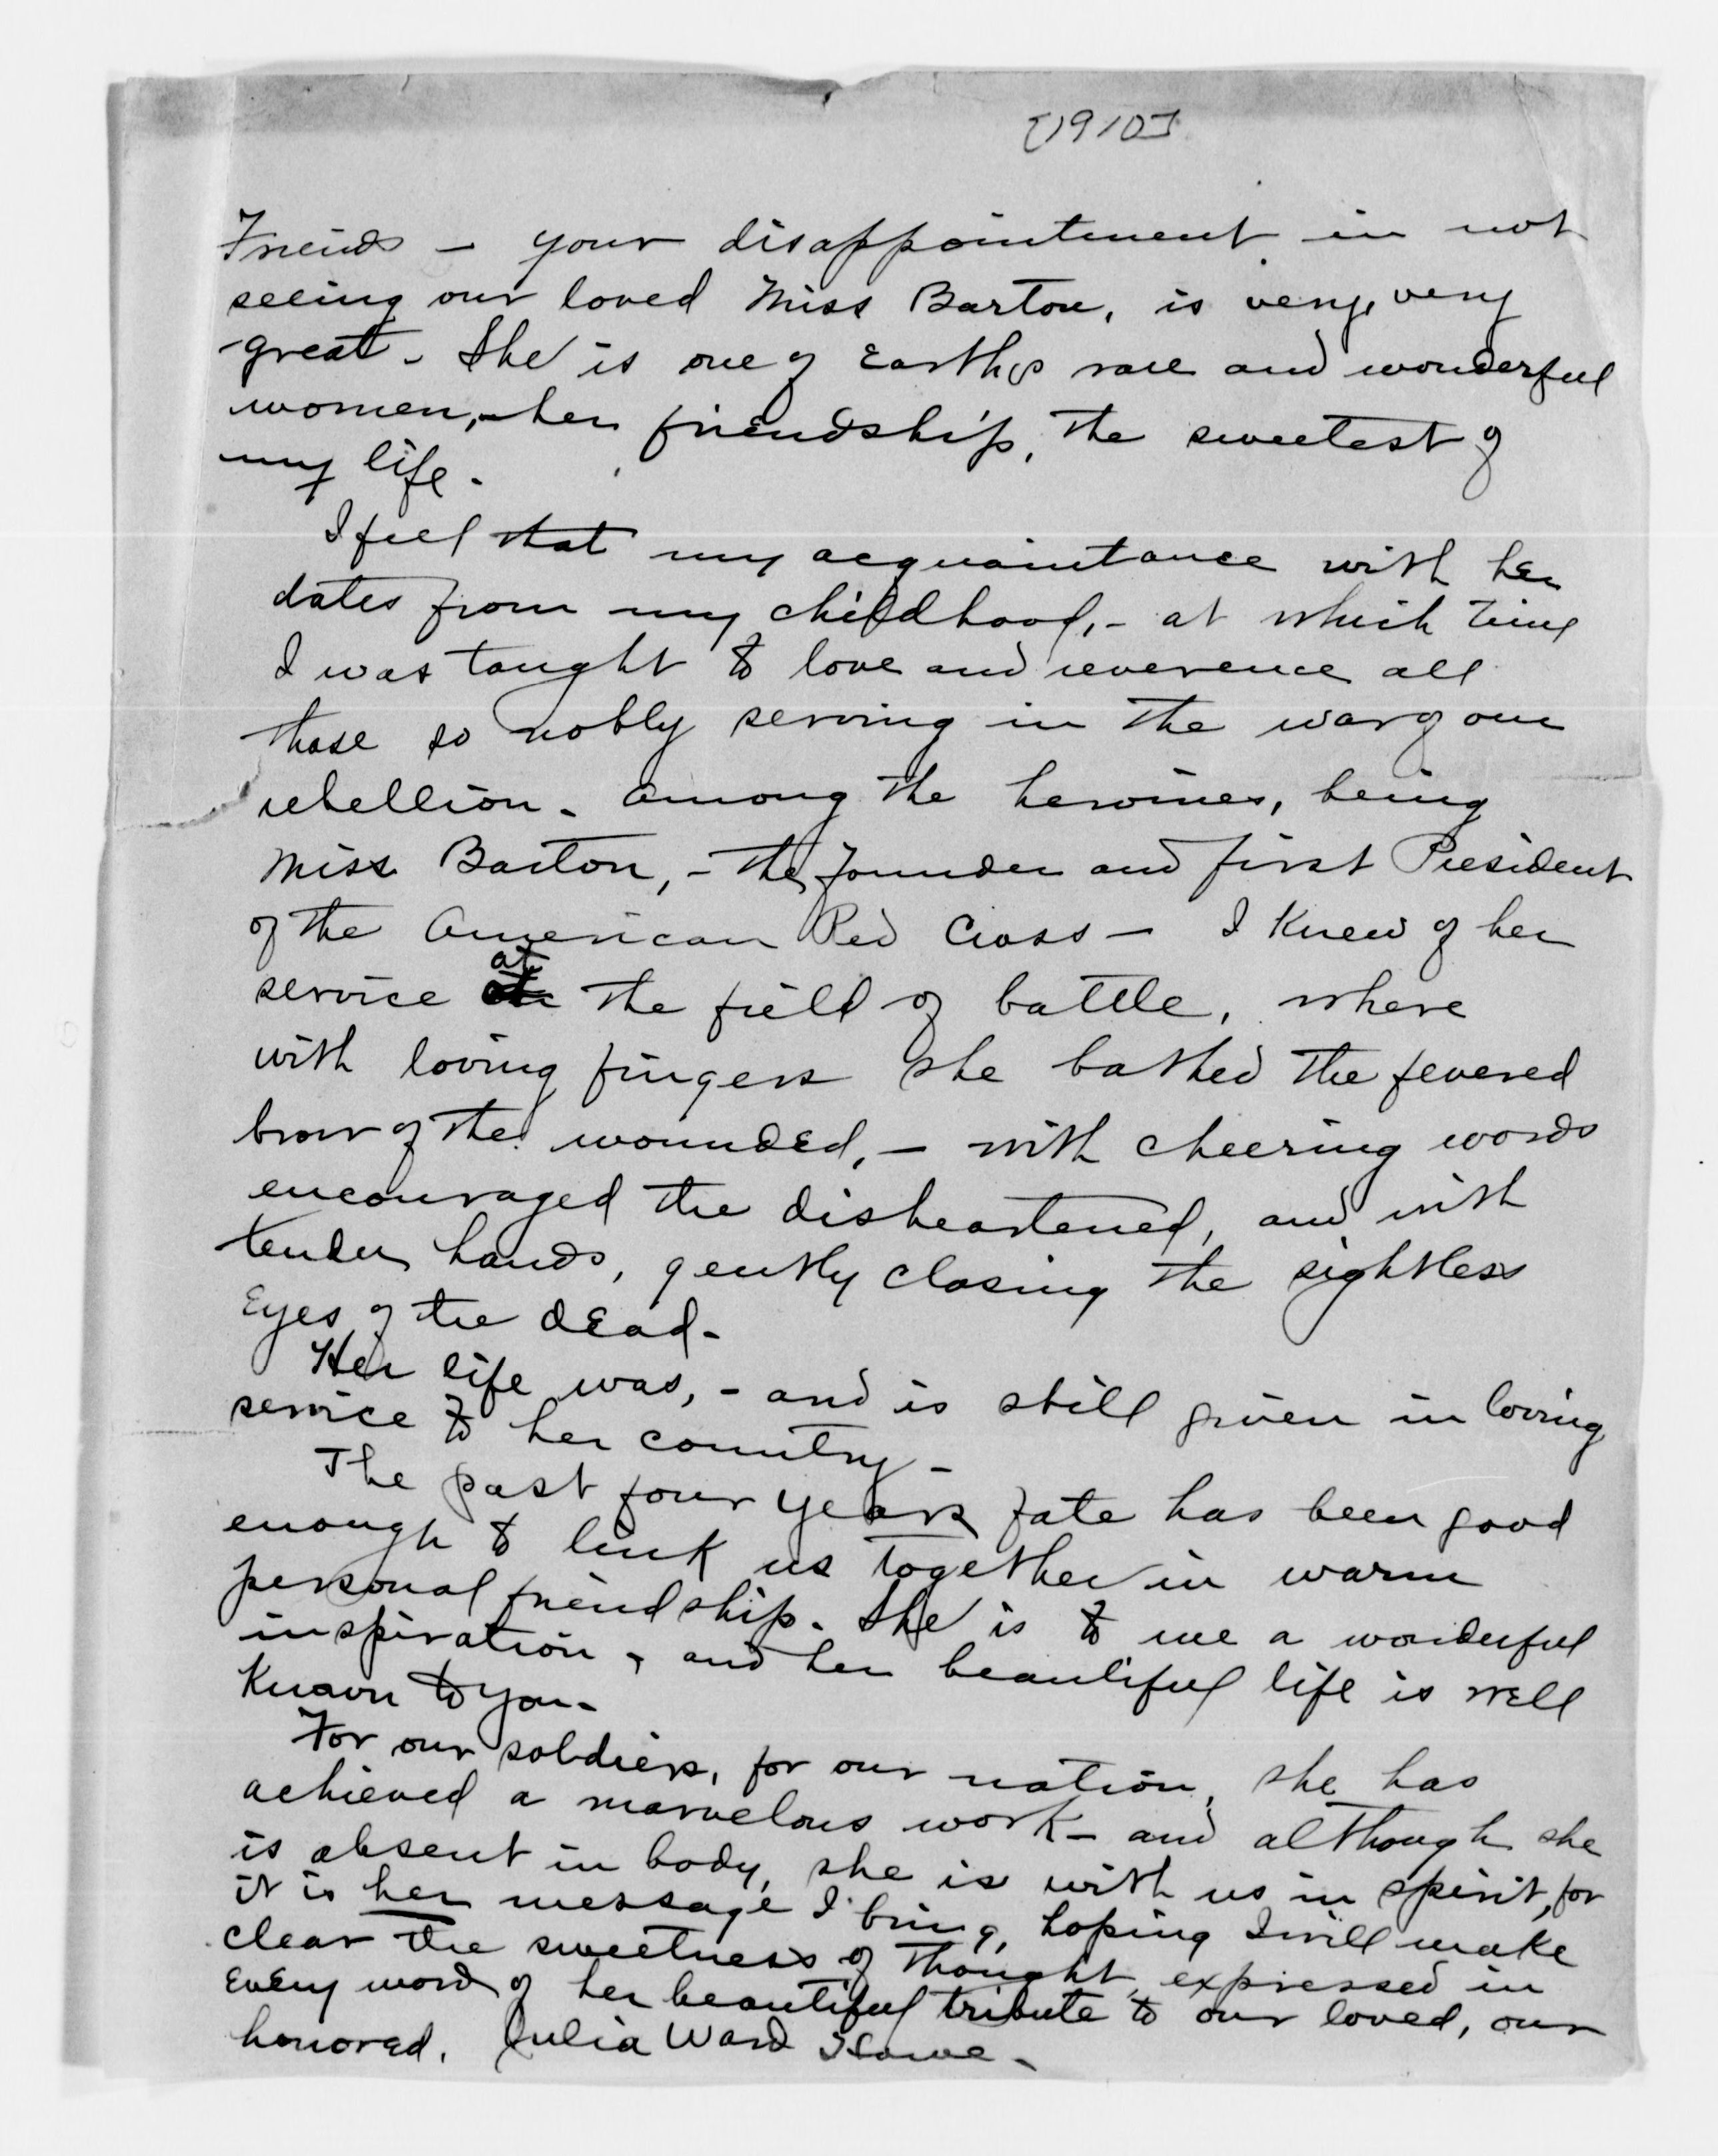 [1910]
Friends – your disappointment in not
seeing our loved Miss Barton, is very, very
great – She is one of Earth's rare and wonderful
women, – her friendship, the sweetest of
my life –
I feel that my acquaintance with her
dates from my childhood, – at which time
I was taught to love and reverence all
those so nobly serving in the war of our
rebellion – Among the heroines, being
Miss Barton, – the founder and first President
of the American Red Cross – I knew of her
service at the field of battle, where
with loving fingers she bathed the fevered
brow of the wounded, – with cheering words
encouraged the disheartened, and with
tender hands, gently closing the sightless
Eyes of the dead –
Her life was, – and is still given in loving
service to her country –
The past four years fate has been good
enough to link us together in warm
personal friendship – She is to me a wonderful
inspiration, and her beautiful life is well
known to you –
For our soldiers, for our nation, she has
achieved a marvelous work – and although she
is absent in body, she is with us in spirit, for
it is her message I bring, hoping I will make
clear the sweetness of thought, expressed in
every word of her beautiful tribute to our loved, our
honored, Julia Ward Howe –